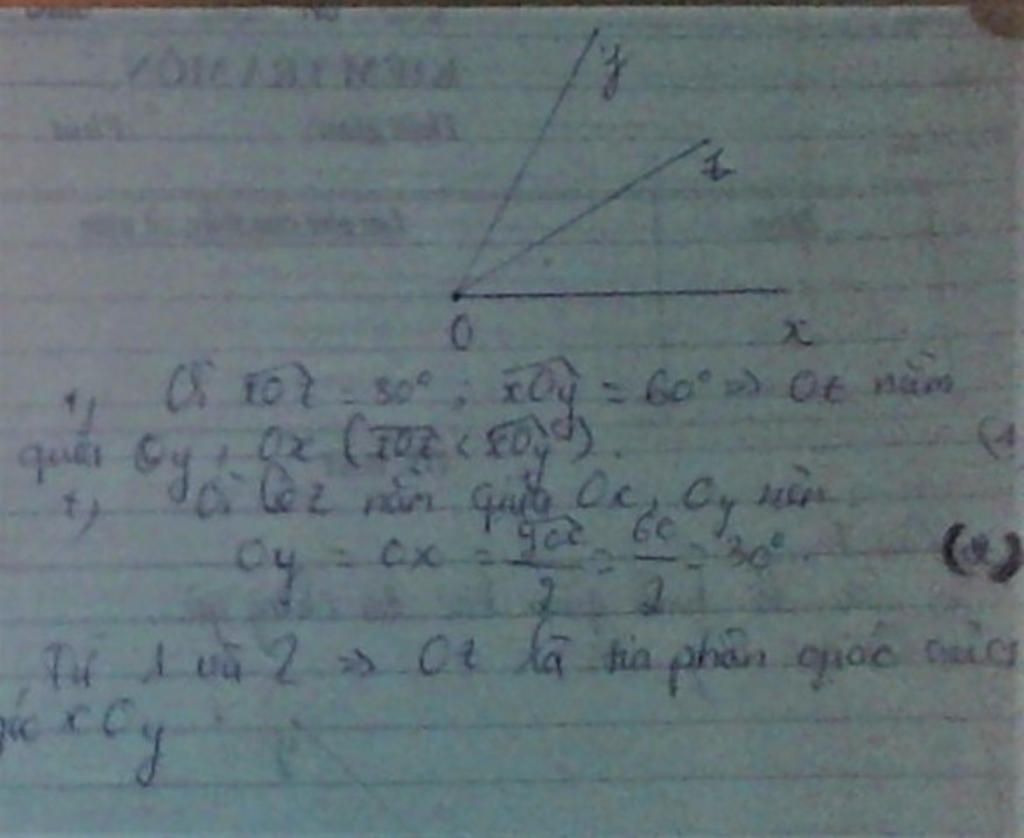 y
z
O x
+) Vì xOz = 30°; xOy = 60° => Oz nằm
giữa Oy, Ox (xOz < xOy). (1
+) Vì Oz nằm giữa Ox, Oy nên
Oy = Ox = yOx/2 = 60/2 = 30°. (2)
Từ 1 và 2 => Oz là tia phân giác của
góc xOy